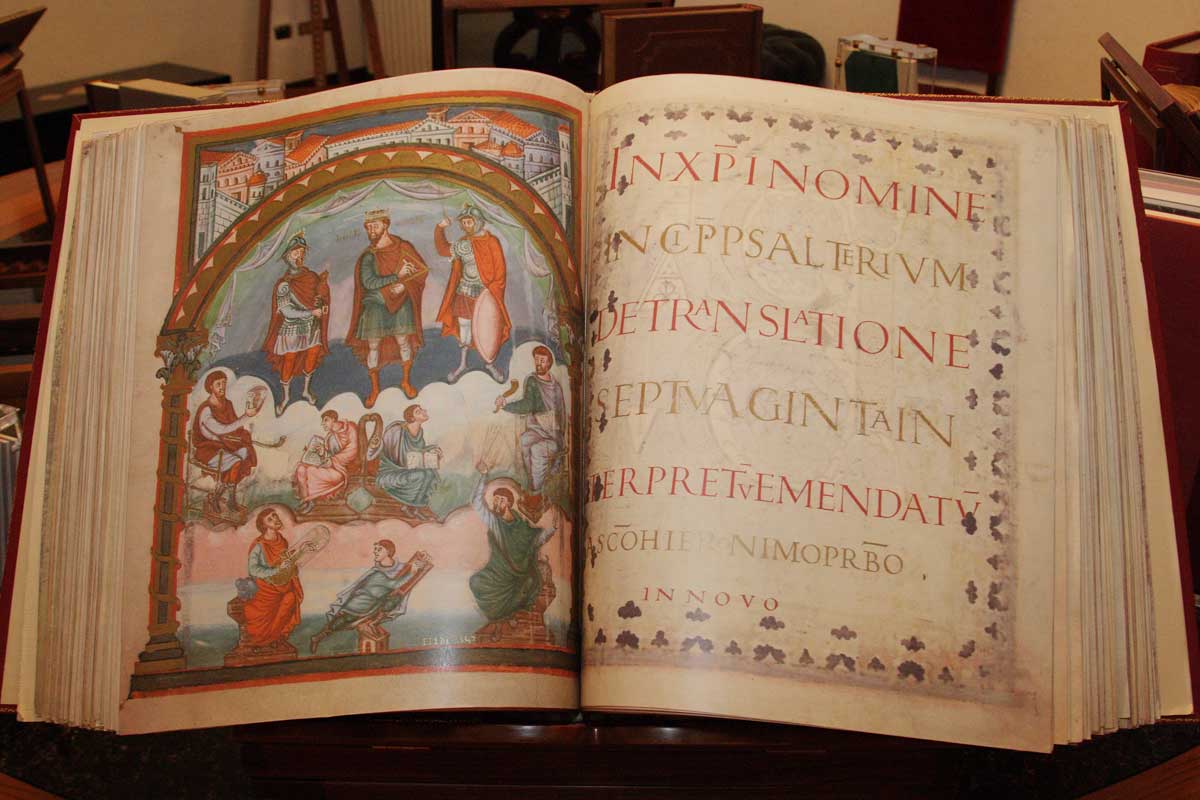 INXP̄INOMINE
INCIP̄PSALTERIVM
DETRANSLATIONE
SEPTVAGINTAIN
TERPRETV̄EMENDATV̄
ASCŌHIERONIMOPRB̄O
INNOVO